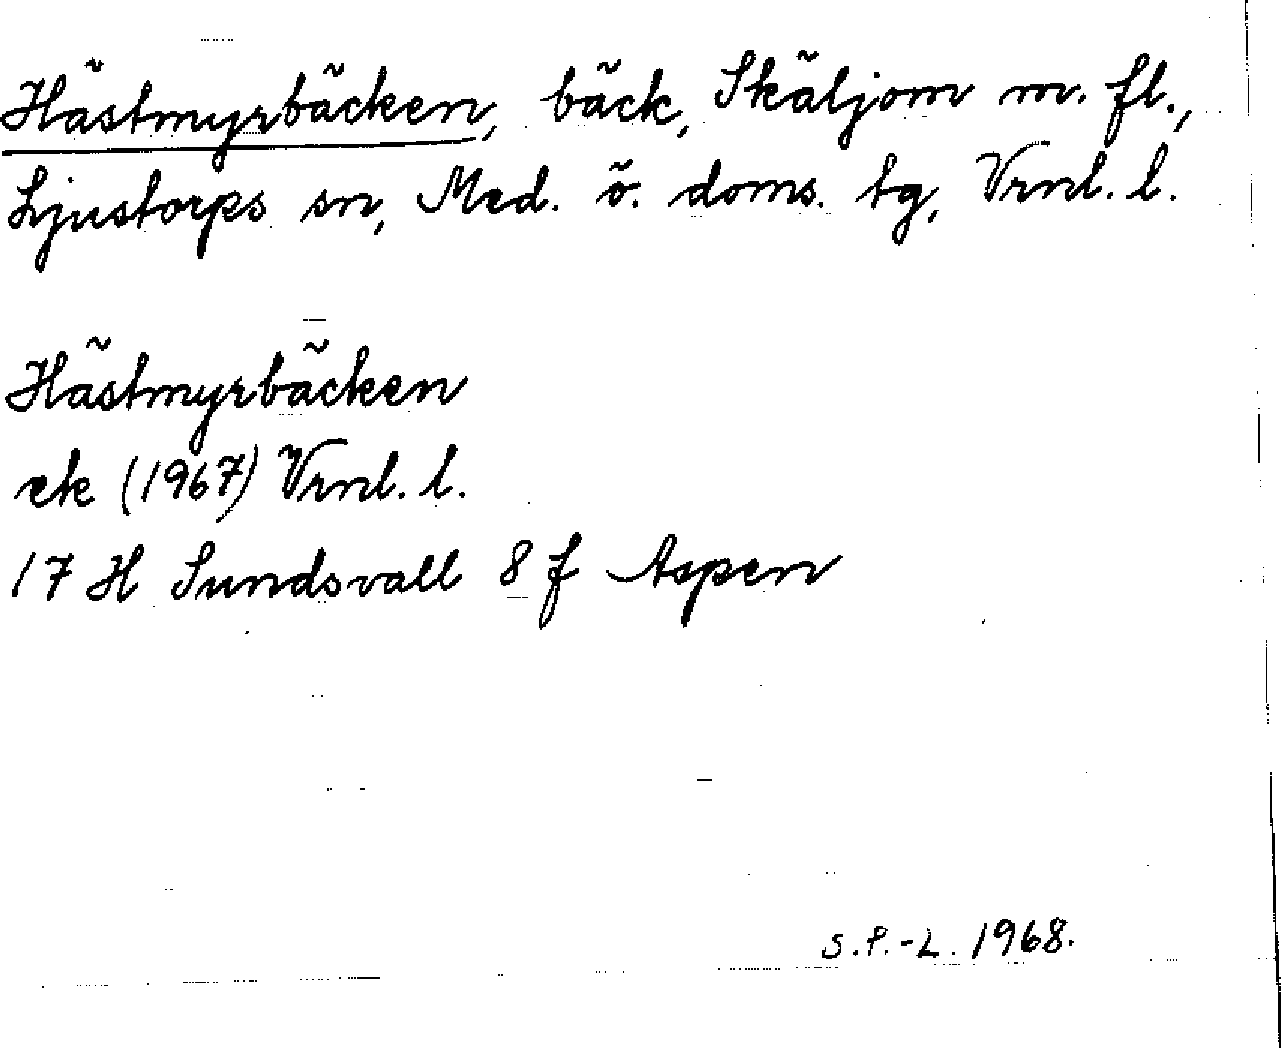 Hästmyrbäcken, bäck, Skäljom m. fl.,
Ljustorps sn, Med. ö. doms. tg, Vrnl. l.
Hästmyrbäcken
ek (1967) Vrnl. l.
17 H Sundsvall 8 f Aspen
S.P.-L. 1968.